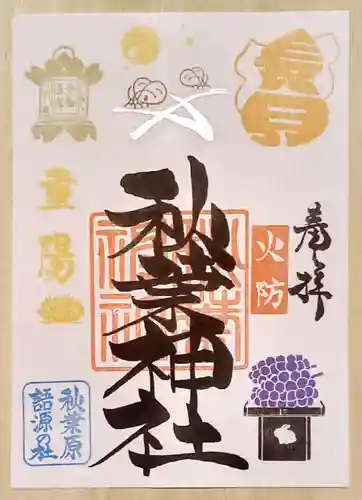 長月
奉拝
火防
秋葉神社
重陽
秋葉原
語源の社